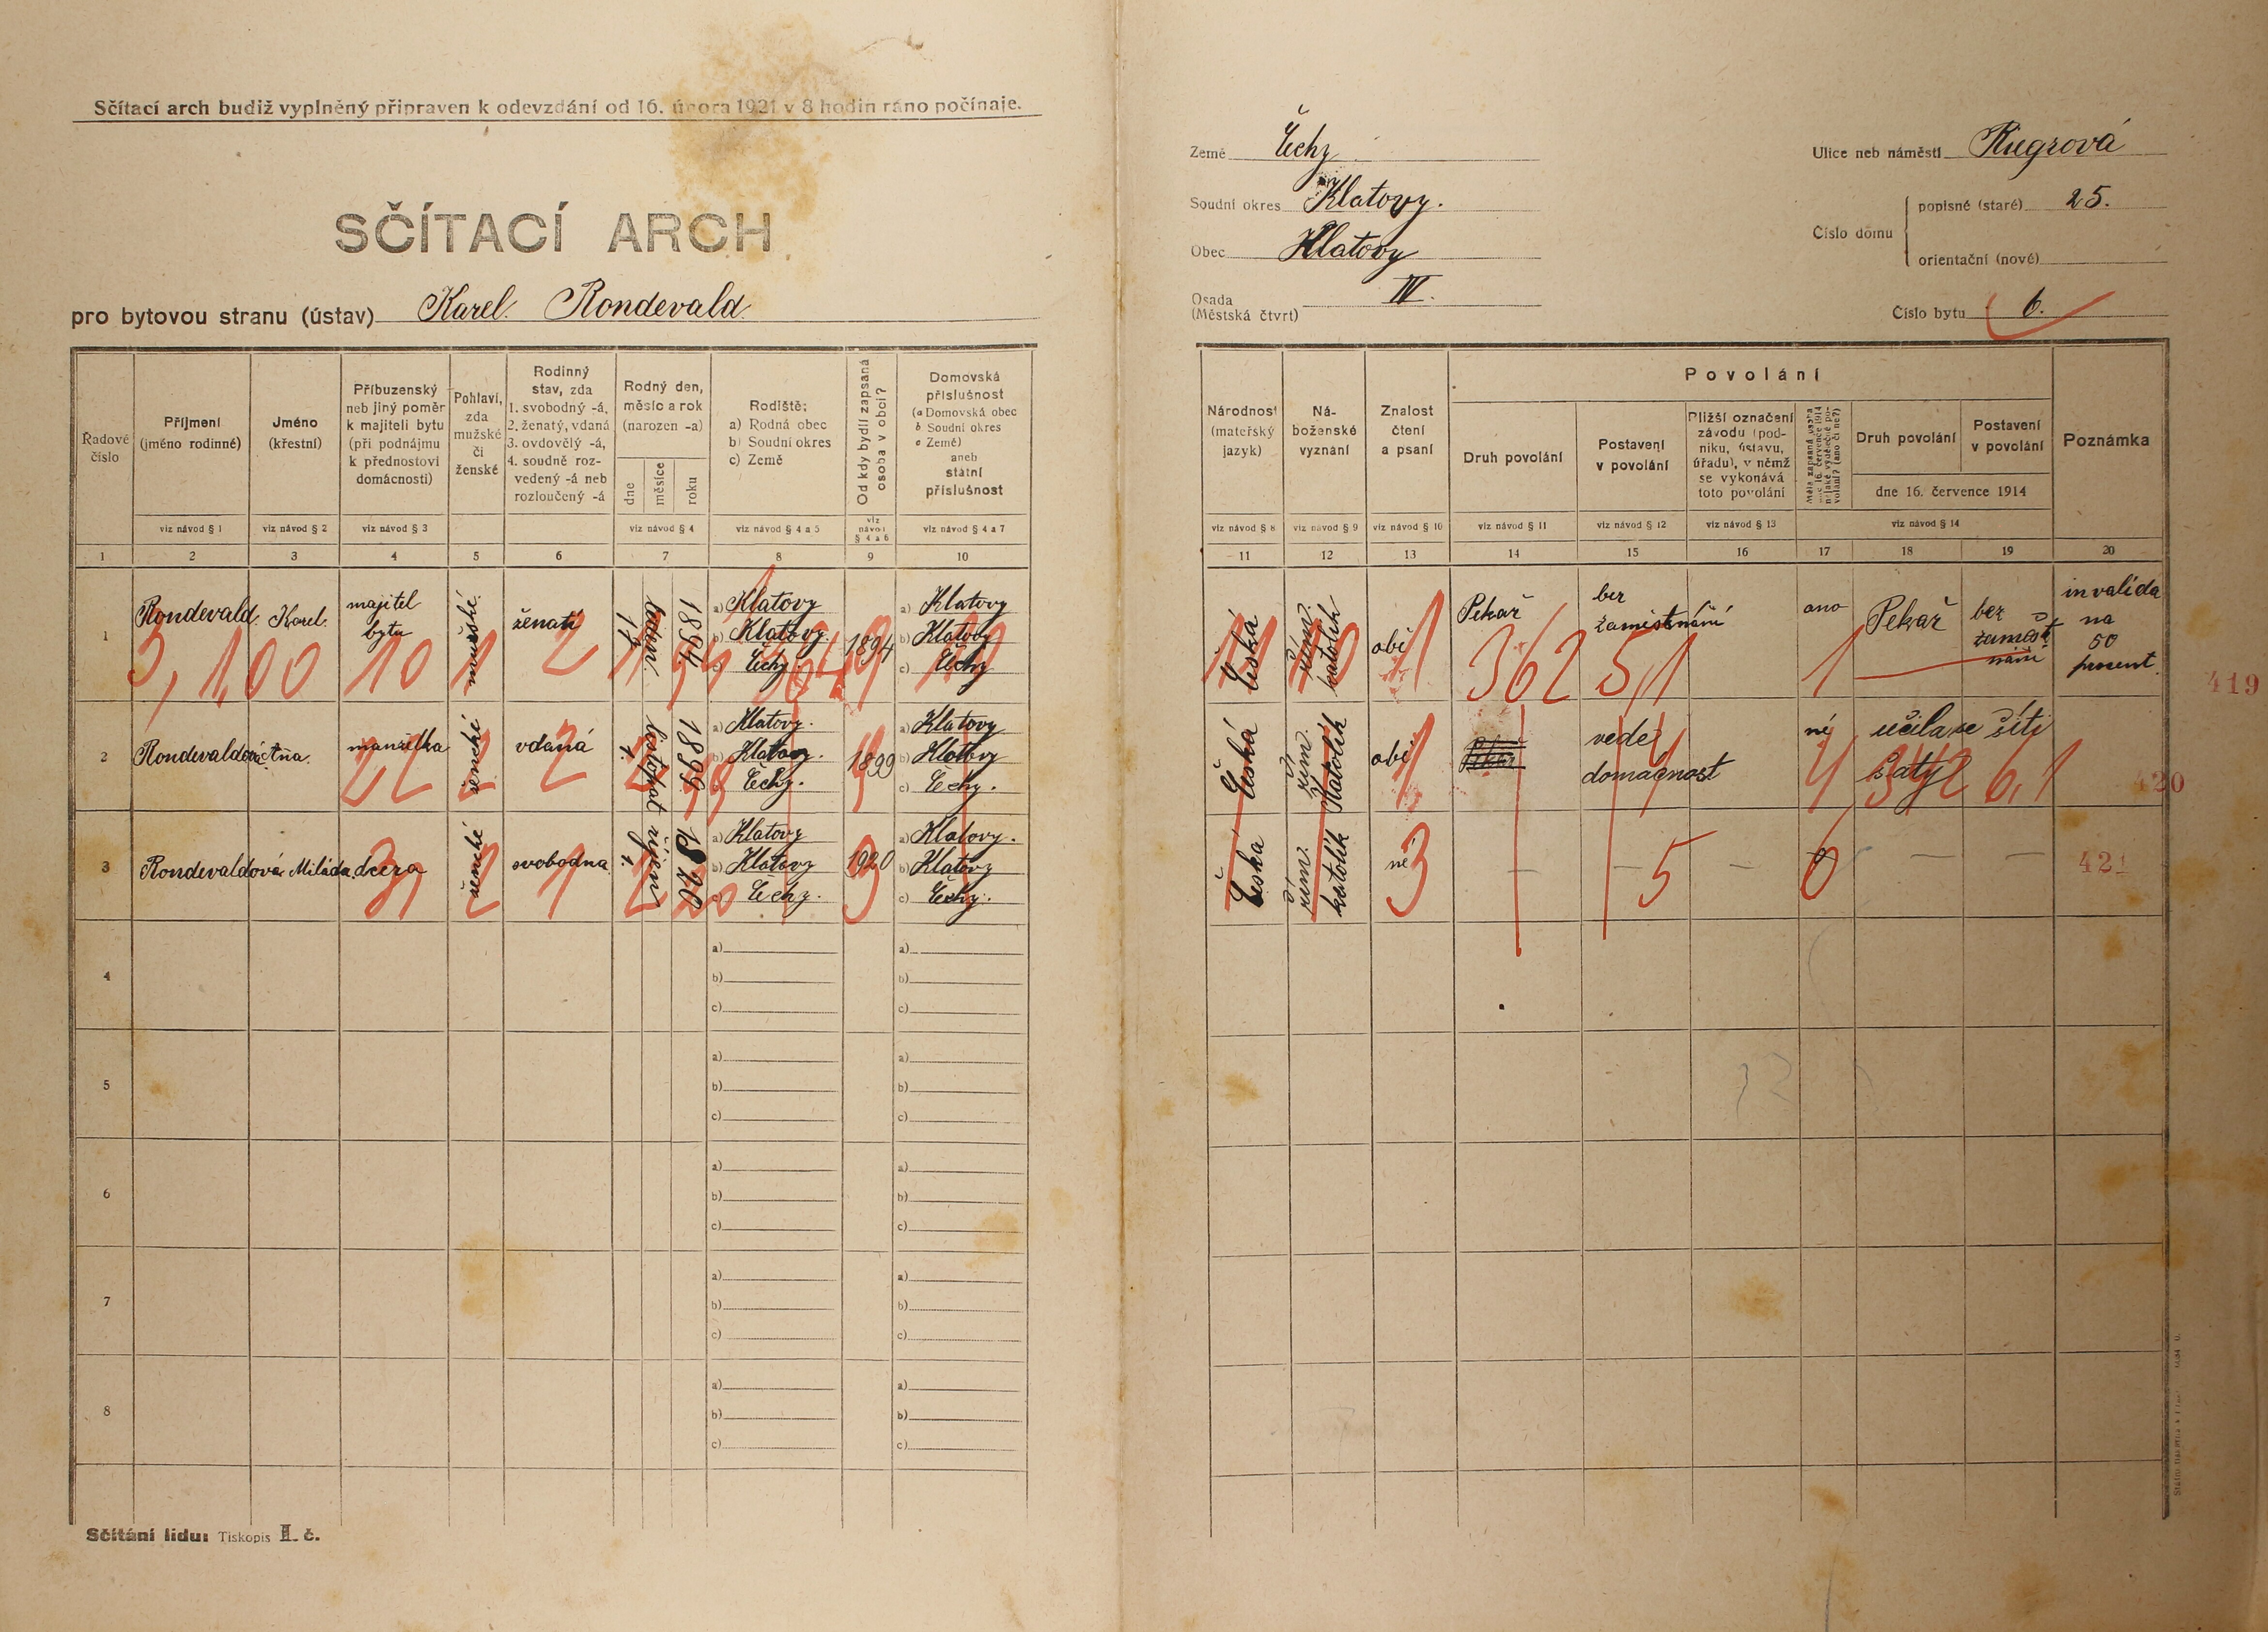 Sčítací arch budiž vyplněný připraven k odevzdání od 16. února 1921 v 8 hodin ráno počínaje.
SČÍTACÍ ARCH
pro bytovou stranu (ústav) Karel Rondevald
Řadové číslo
Příjmení (jméno rodinné)
Jméno (křestní)
Příbuzenský neb jiný poměr k majiteli bytu (při podnájmu k přednostovi domácnosti)
Pohlaví, zda mužské či ženské
Rodinný stav, zda
1. svobodný -á,
2. ženatý, vdaná
3. ovdovělý -á,
4. soudně rozvedený -á neb rozloučený -á
Rodný den, měsíc a rok (narozen -a)
dne měsíce roku
Rodiště:
a) Rodná obec
b) Soudní okres
c) Země
Od kdy bydlí zapsaná osoba v obci?
Domovská příslušnost
(a Domovská obec
b Soudní okres
c Země)
aneb
státní příslušnost
viz návod § 1 viz návod § 2 viz návod § 3 viz návod § 4 viz návod § 4 a 5 viz návod § 4 a 6 viz návod § 4 a 7
1 2 3 4 5 6 7 8 9 10
1 Rondevald Karel majitel bytu mužské ženatí leden 1894 a) Klatovy b) Klatovy c) Čechy 1894 a) Klatovy b) Klatovy c) Čechy
3,100 10 1 2
2 Rondevaldová Aňa manželka ženské vdaná listopat 1899 a) Klatovy b) Klatovy c) Čechy 1899 a) Klatovy b) Klatovy c) Čechy
22 2 2
3 Rondevaldová Miláda dcera ženské svobodna říjen 1920 a) Klatovy b) Klatovy c) Čechy 1920 a) Klatovy b) Klatovy c) Čechy
31 2 1 2 20 3
4 a) b) c) a) b) c)
5 a) b) c) a) b) c)
6 a) b) c) a) b) c)
7 a) b) c) a) b) c)
8 a) b) c) a) b) c)
Sčítání lidu: Tiskopis II. č.
Země Čechy
Soudní okres Klatovy.
Obec Klatovy
Osada (Městská čtvrt) IV.
Ulice neb náměstí Riegrová
Číslo domu
popisné (staré) 25.
orientační (nové)
Číslo bytu 6.
Národnost (mateřský jazyk)
Náboženské vyznání
Znalost čtení a psaní
Povolání
Druh povolání
Postavení v povolání
Bližší označení závodu (podniku, ústavu, úřadu), v němž se vykonává toto povolání
Druh povolání
Postavení v povolání
dne 16. července 1914
Poznámka
viz návod § 8 viz návod § 9 viz návod § 10 viz návod § 11 viz návod § 12 viz návod § 13 viz návod § 14
11 12 13 14 15 16 17 18 19 20
Česká řím. katolík obě Pekař bez zaměstnání ano Pekař bez zaměstnání invalida na 50 procent
1 362 51 1
419
Česká řím. Katolík obě vede domacnost né učila se šíti šaty
1 4 4 342 6,1
420
Česká řím. katolík ne – – – – –
3 5 0
421